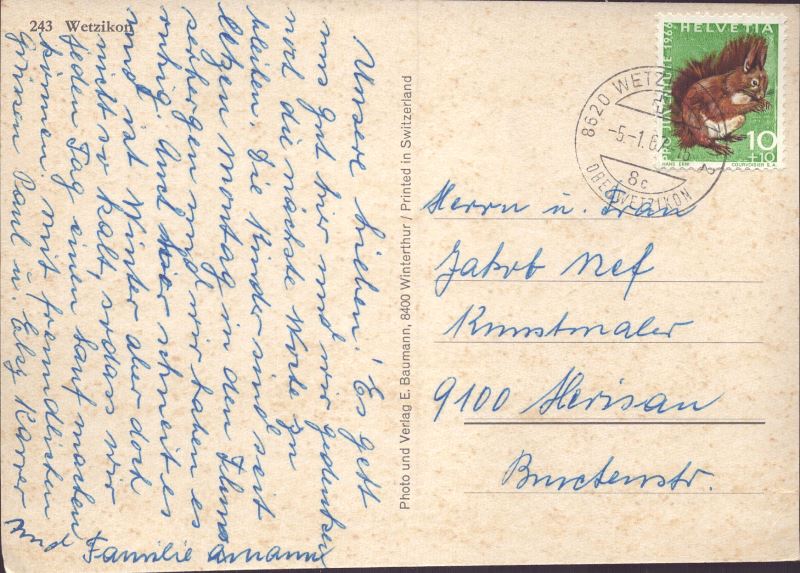 243 Wetzikon
Unsere Lieben! Es gett
uns gut hier und wir gedenken
noch die nächste Woche zu
bleiben. Die Kinder sind seit
letzen Montag in den
und wir haben es
ruhig. Auch hier schneit es
und ist Winter aber doch
nicht so kalt, sodas wir
jeden Tag einen Lauf machen
können. mit freundlichen
Grüssen Paul u. Elsy Karrer
und Familie Amann
Photo und Verlag E. Baumann, 8400 Winterthur / Printed in Switzerland
HELVETIA
PRO JUVENTUTE 1966
10
+10
HANS ERNI
COURVOISIER S.A.
8620 WETZIKON 2
-5.-1.67
8c
OBERWETZIKON
Herrn u. Frau
Jakob Nef
Kunstmaler
9100 Herisau